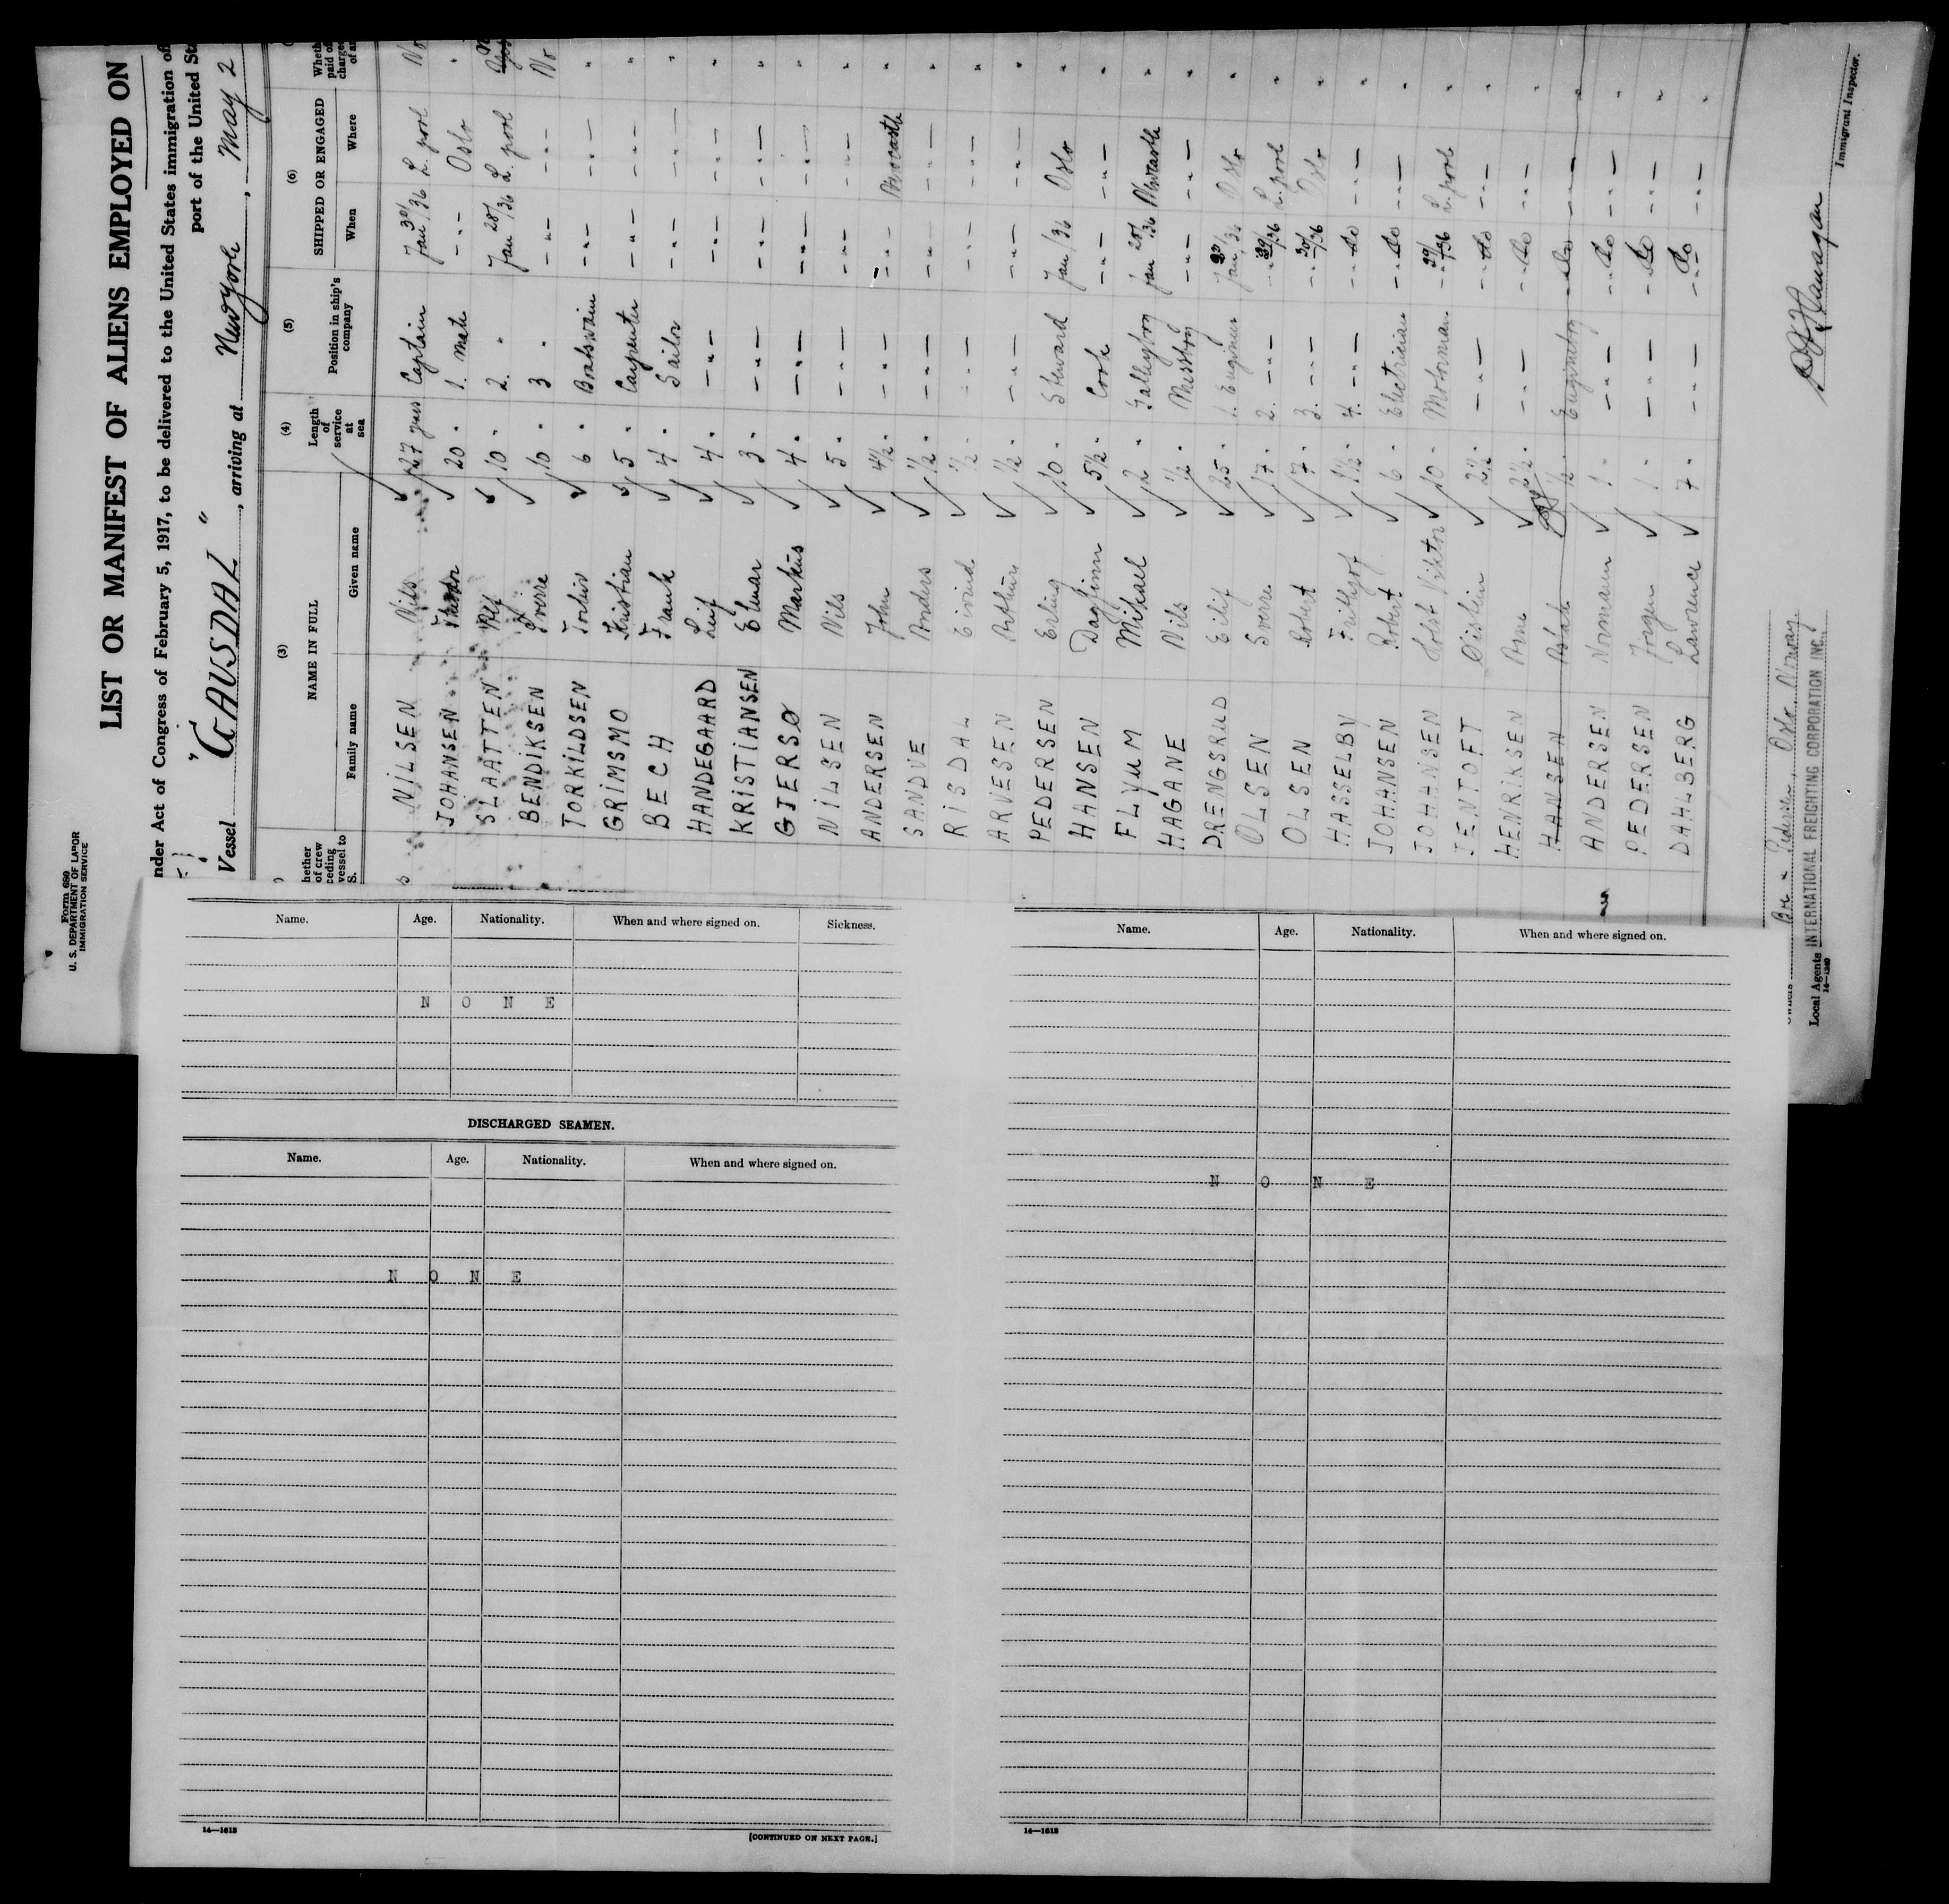 Form 680
U. S. DEPARTMENT OF LABOR
IMMIGRATION SERVICE
LIST OR MANIFEST OF ALIENS EMPLOYED ON
nder Act of Congress of February 5, 1917, to be delivered to the United States immigration of
port of the United St
Vessel "GAUSDAL", arriving at Newyork, May 2
(3) (4) (5) (6)
hether of crew ceding vessel to S. NAME IN FULL Length of service at sea Position in ship's company SHIPPED OR ENGAGED Wheth paid of charge of a
Family name Given name When Where
NILSEN Nils 27 years Captain Jan 30/36 L. pool No
JOHANSEN 20 " 1. mate - " - Oslo "
SLAATTEN Alf 10 " 2. " Jan 28/36 L. pool
BENDIKSEN Sverre 10 " 3 " - " - - " - No
TORKILDSEN Torleiv 6 " Boatswain - " - - " - "
GRIMSMO Kristian 5 " Carpenter - " - - " - "
BECH Frank 4 " Sailor - " - - " - "
HANDEGAARD Leif 4 " - " - - " - - " - "
KRISTIANSEN Elmar 3 " - " - - " - - " - "
GJERSØ Markus 4 " - " - - " - - " - "
NILSEN Nils 5 " - " - - " - - " - "
ANDERSEN John 4½ " - " - - " - Newcastle "
SANDVE Anders ½ " - " - - " - - " - "
RISDAL Eivind ½ " - " - - " - - " - "
ARVESEN Arthur ½ " - " - - " - - " - "
PEDERSEN Erling 10 " Steward Jan /36 Oslo "
HANSEN Dagfinn 5½ " Cook - " - - " - "
FLYUM Mikael 2 " Galleyboy Jan 28/36 Newcastle "
HAGANE Nils ½ " Messboy - " - - " - "
DRENGSRUD Eilif 25 " 1. Engineer Jan /36 Oslo "
OLSEN Sverre 17 " 2. - " - - " - 29/36 L. pool "
OLSEN Robert 7 " 3. - " - - " - 30/36 Oslo "
HASSELBY Frithjof 1½ " 4. - " - - " - do - " - "
JOHANSEN Robert 6 " Electrician - " - do - " - "
JOHANSEN Viktor 10 " Motorman - " - 29/1-36 L. pool "
JENTOFT Oistein 2½ " - " - - " - do - " - "
HENRIKSEN Arne 2½ " - " - - " - do - " - "
HANSEN ½ " Engineboy - " - do - " - "
ANDERSEN Normann 1 " - " - - " - do - " - "
PEDERSEN Jørgen 1 " - " - - " - do - " - "
DAHLBERG Lawrence 7 " - " - - " - do - " - "
Owners Oslo, Norway.
Local Agents INTERNATIONAL FREIGHTING CORPORATION INC.
14—1240
Immigrant Inspector.
Name. Age. Nationality. When and where signed on. Sickness.
N O N E
DISCHARGED SEAMEN.
Name. Age. Nationality. When and where signed on.
N O N E
14—1613
[CONTINUED ON NEXT PAGE.]
Name. Age. Nationality. When and where signed on.
N O N E
14—1613